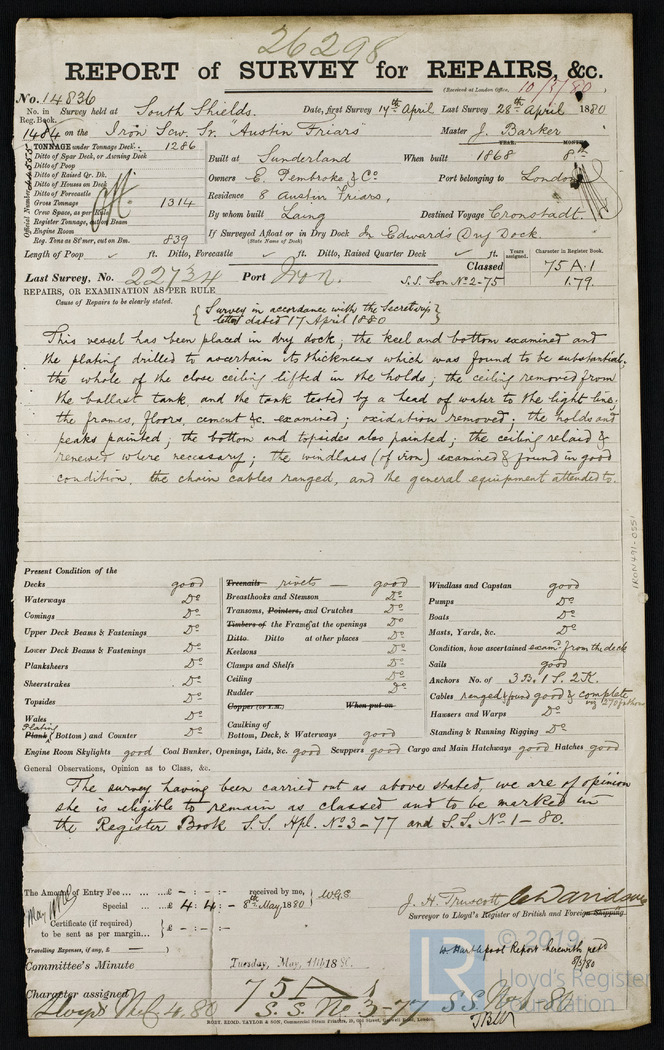 26298
REPORT of SURVEY for REPAIRS, &c.
(Received at London Office, 10/5/80
No. 14836
No. in Reg. Book. Survey held at South Shields. Date, first Survey 14th April Last Survey 28th April 1880
1484 on the Iron Scw. Sr. "Austin Friars" Master J. Barker
TONNAGE under Tonnage Deck 1286
Ditto of Spar Deck, or Awning Deck
Ditto of Poop
Ditto of Raised Qr. Dk.
Ditto of Houses on Deck
Ditto of Forecastle
Gross Tonnage 1314
Crew Space, as per Rule
Register Tonnage, cut on Beam
Engine Room
Reg. Tons as St'mer, cut on Bm. 839
Official Number
YEAR. MONTH.
Built at Sunderland When built 1868 8th
Owners E. Pembroke & Co Port belonging to London
Residence 8 Austin Friars,
By whom built Laing Destined Voyage Cronstadt.
If Surveyed Afloat or in Dry Dock In Edward's Dry Dock
(State Name of Dock)
Length of Poop ft. Ditto, Forecastle ft. Ditto, Raised Quarter Deck ft.
Years assigned. Character in Register Book.
Classed 75 A.1
1.79.
Last Survey, No. 22734 Port S.S. Lon No 2-75
REPAIRS, OR EXAMINATION AS PER RULE
Cause of Repairs to be clearly stated.
{Survey in accordance with the Secretary's
letter dated 17 April 1880}
This vessel has been placed in dry dock; the keel and bottom examined and
the plating drilled to ascertain its thickness which was found to be substantial;
the whole of the close ceiling lifted in the holds; the ceiling removed from
the ballast tank, and the tank tested by a head of water to the light line;
the frames, floors, cement &c. examined; oxidation removed; the holds and
peaks painted; the bottom and topsides also painted; the ceiling relaid &
renewed where necessary; the windlass (of iron) examined & found in good
condition, the chain cables ranged, and the general equipment attended to.
IRON491-0551
Present Condition of the
Decks good
Waterways Do
Comings Do
Upper Deck Beams & Fastenings Do
Lower Deck Beams & Fastenings Do
Planksheers Do
Sheerstrakes Do
Topsides Do
Wales Do
Plating
Plank (Bottom) and Counter Do
Treenails rivets — good
Breasthooks and Stemson Do
Transoms, Pointers, and Crutches Do
Timbers of the Frame at the openings Do
Ditto. Ditto at other places Do
Keelsons Do
Clamps and Shelfs Do
Ceiling Do
Rudder Do
Copper (or Y.M.) When put on
Caulking of
Bottom, Deck, & Waterways good
Windlass and Capstan good
Pumps Do
Boats Do
Masts, Yards, &c. Do
Condition, how ascertained exam'd from the deck
Sails good
Anchors No. of 3 B. 1 S. 2 K.
Cables ranged & found good & complete
viz 270 fathoms
Hawsers and Warps Do
Standing & Running Rigging Do
Engine Room Skylights good Coal Bunker, Openings, Lids, &c. good Scuppers good Cargo and Main Hatchways good Hatches good
General Observations, Opinion as to Class, &c.
The survey having been carried out as above stated, we are of opinion
she is eligible to remain as classed and to be marked in
the Register Book S.S. Hpl. No 3-77 and S.S. No 1-80.
The Amount of Entry Fee ... £ - : - : - received by me,
Special ... £ 4 : 4 : - 8th May 1880 W.G.S.
Certificate (if required) £ - : - : -
to be sent as per margin...
Travelling Expenses, if any, £
J. H. Truscott
Surveyor to Lloyd's Register of British and Foreign Shipping.
W. Hartlepool Report herewith ret'd
8/5/80
Committee's Minute Tuesday, May, 11th 18 80.
Character assigned 75 A 1
Lloyd's 4.80 S.S. No. 3-77 S.S. No 1-80
ROBT. EDMD. TAYLOR & SON, Commercial Steam Printers, 19, Old Street, Goswell Road, London.
LR
© 2019
Lloyd's Register
Foundation